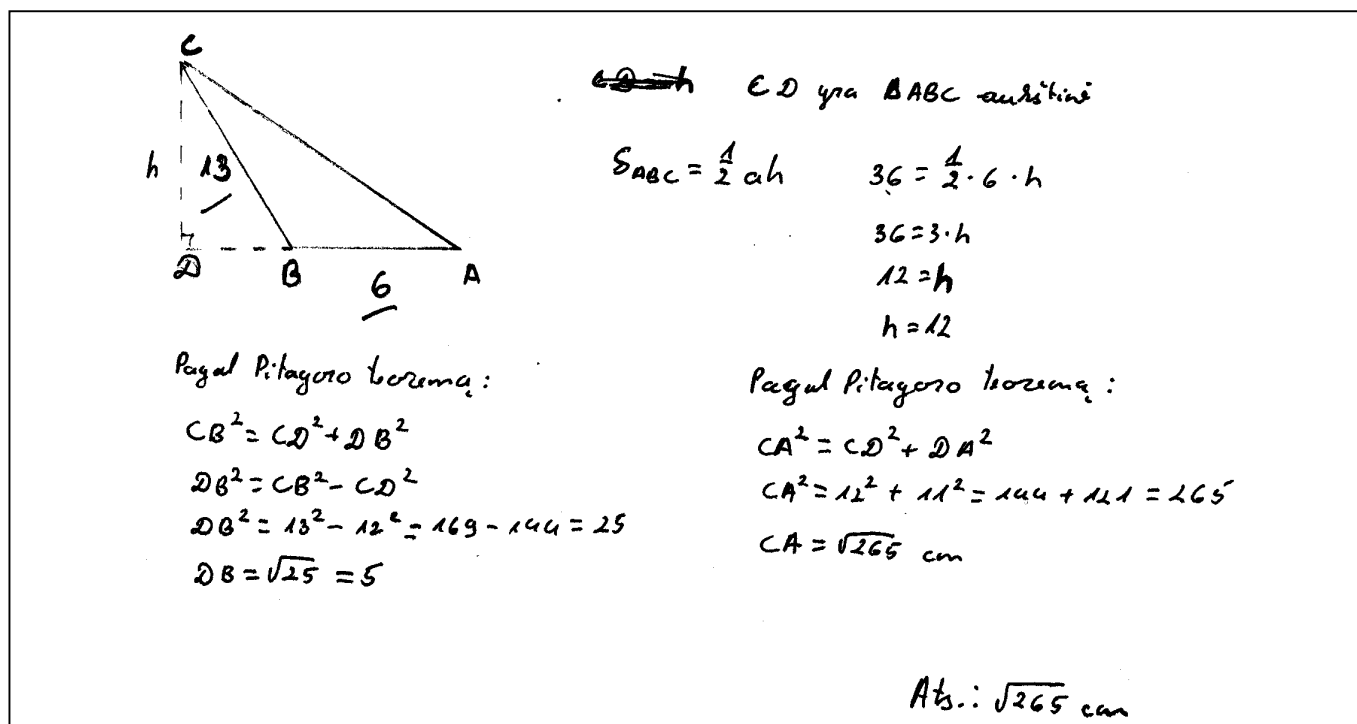 C
h 13
D B A
6
CD yra ΔABC aukštinė
S_ABC = 1/2 ah
36 = 1/2 · 6 · h
36 = 3 · h
12 = h
h = 12
Pagal Pitagoro teoremą:
CB² = CD² + DB²
DB² = CB² - CD²
DB² = 13² - 12² = 169 - 144 = 25
DB = √25 = 5
Pagal Pitagoro teoremą:
CA² = CD² + DA²
CA² = 12² + 11² = 144 + 121 = 265
CA = √265 cm
Ats.: √265 cm